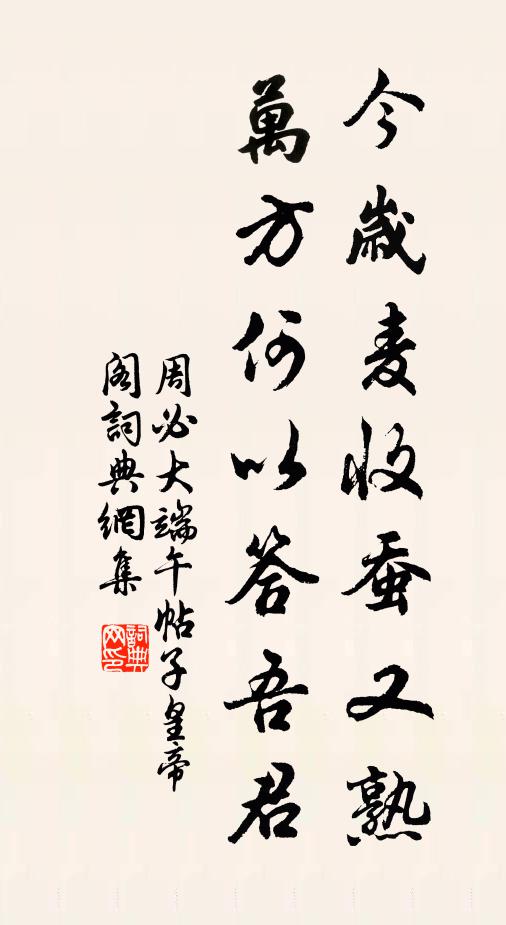 今歲麦收蚕又熟
萬方何以答吾君
周必大端午帖子皇帝
阁詞典網集
詞典
网印